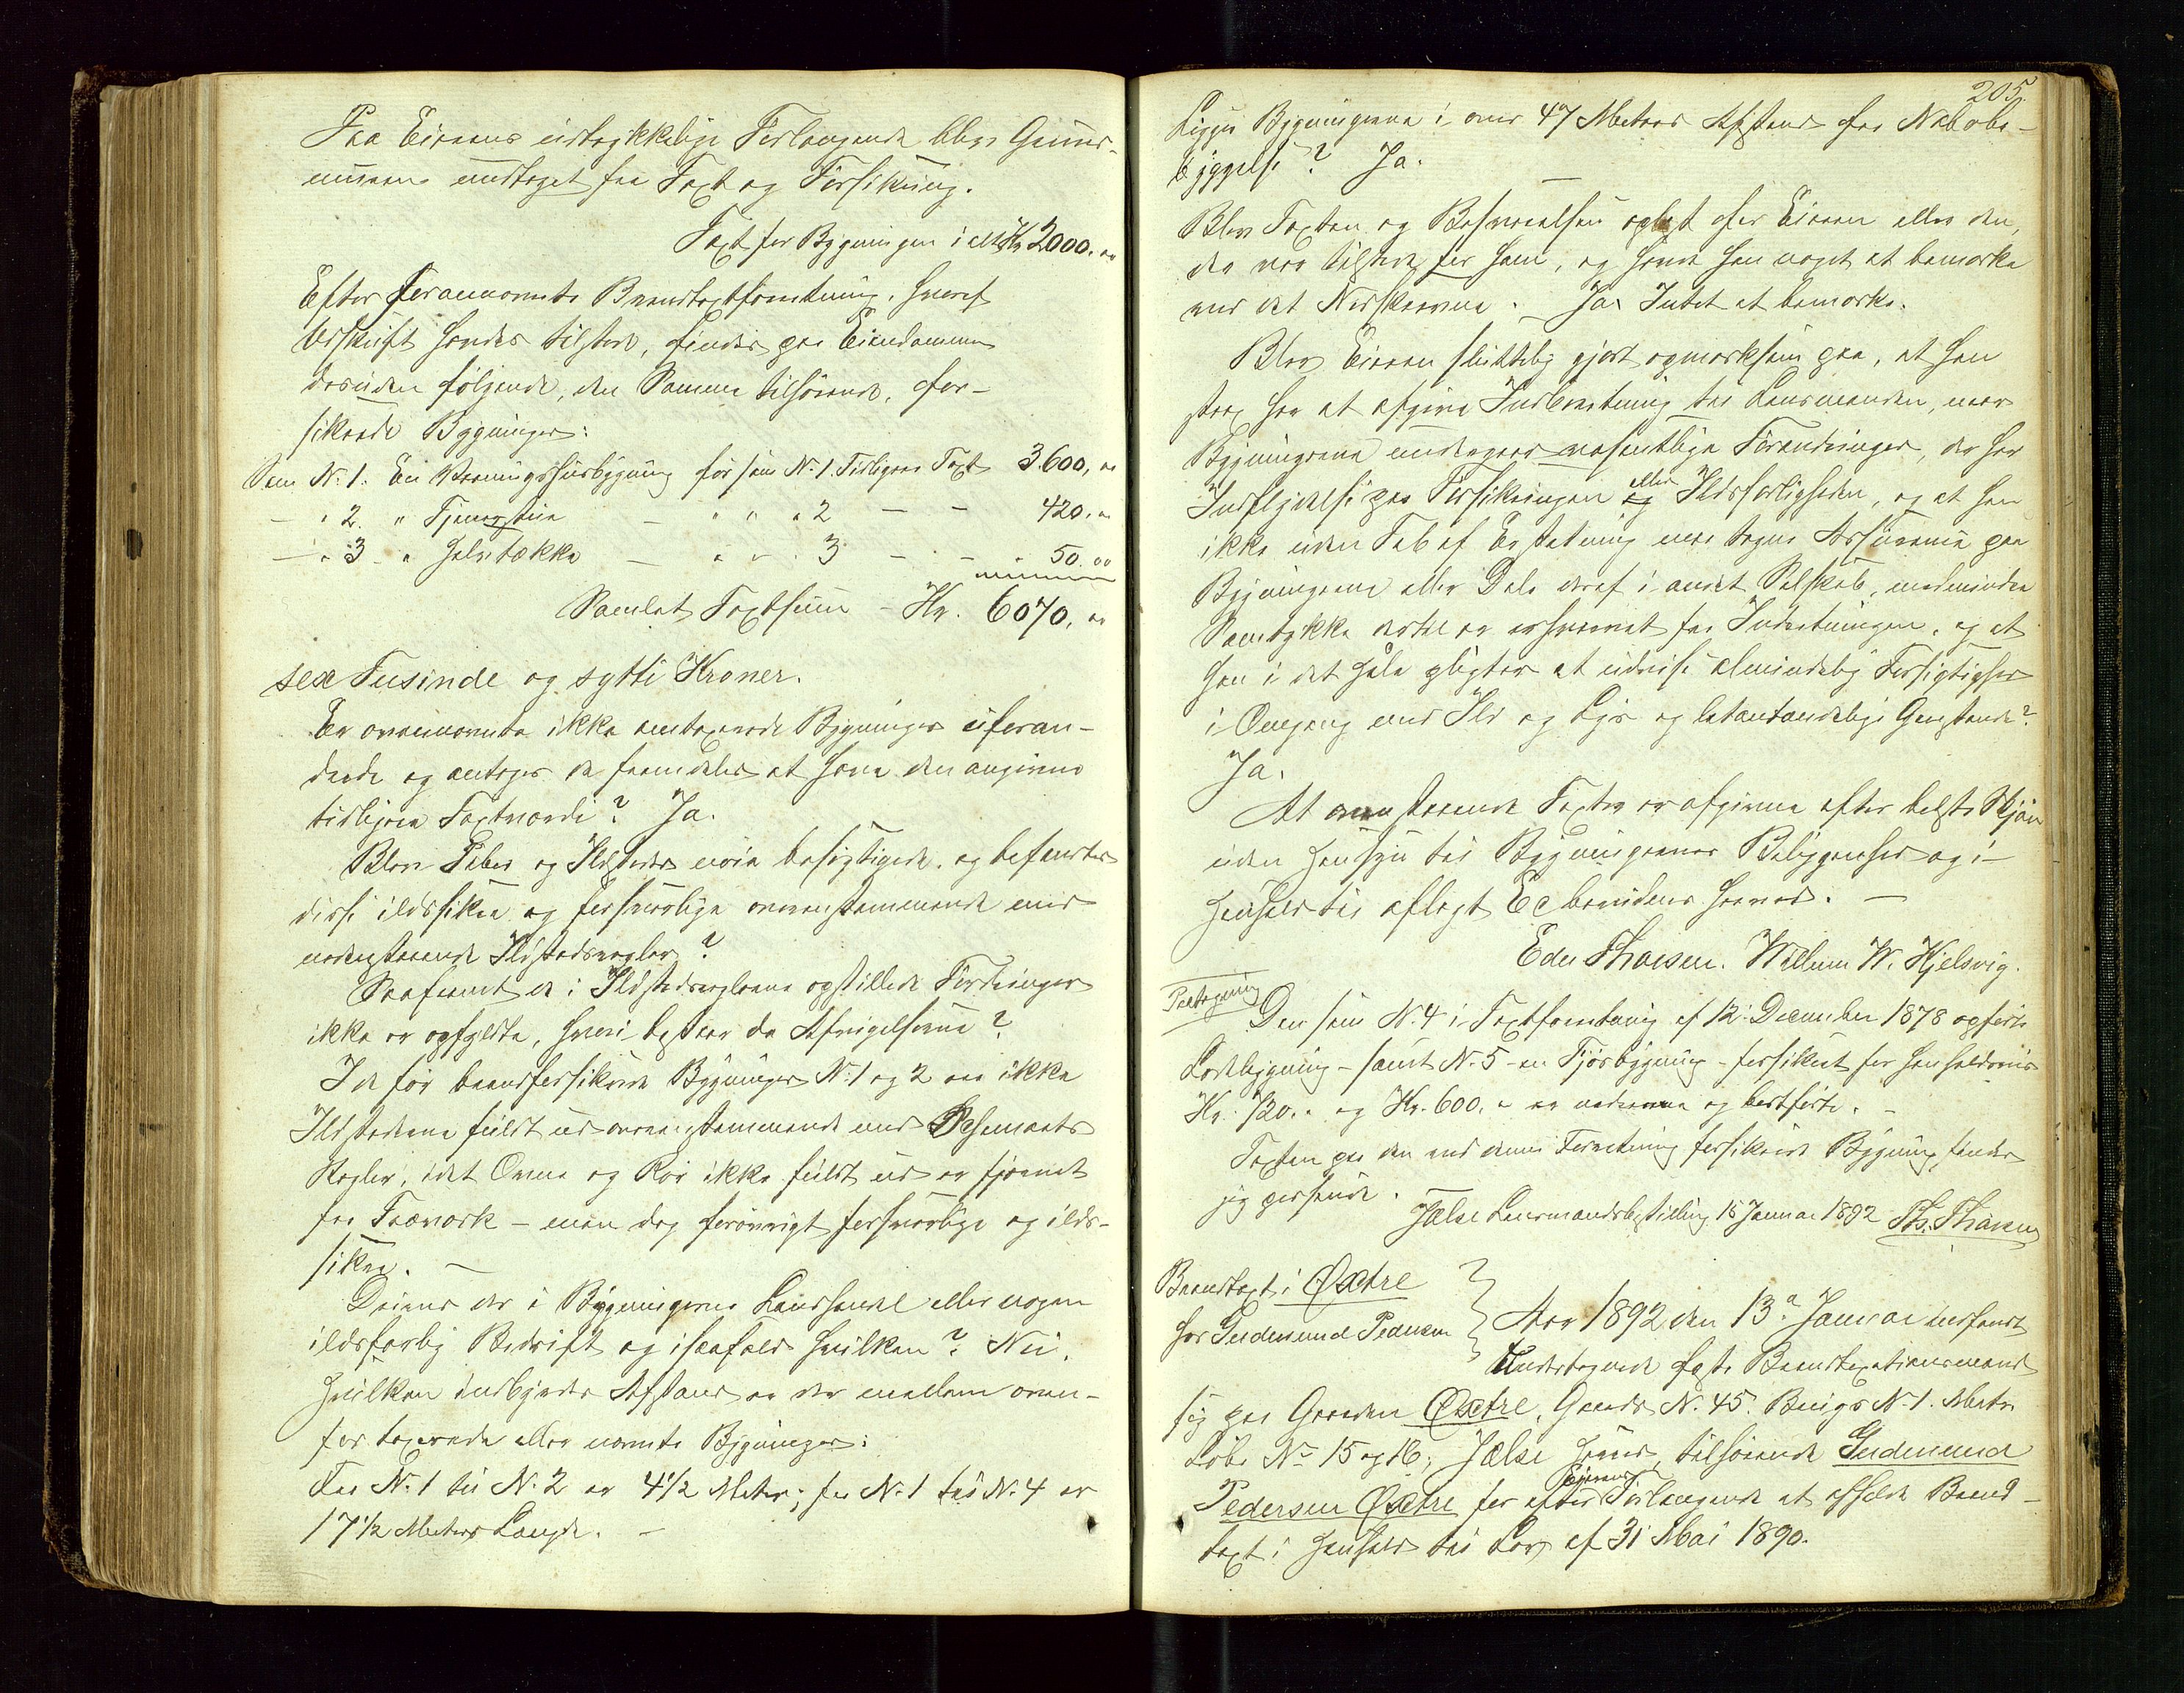 Paa Eierens udtrykkelige Forlangende blev Grund-
muren undtaget fra Taxt og Forsikring.
Taxt for Bygningen i alt Kr 2000. "
Efter forannævnte Brandtaxtforretning, hvoraf
Udskrift havdes tilstede, findes paa Eiendommen
desuden følgende, den Samme tilhørende, for-
sikrede Bygninger:
Som N. 1. En Vaaningshusbygning før som N. 1. Tidligere Taxt 3.600, "
— " 2. " Tjenerstue — " " " 2 — — 420. "
— " 3 " Halvtække — " " " 3 — — " 50. 00
Samlet Taxtsum - Kr. 6070. "
sex Tusinde og sytti Kroner.
Er ovennævnte ikke omtaxerede Bygninger uforan-
drede og antages de fremdeles at have den angivne
tidligere Taxtværdi? Ja.
Blev Piber og Ildsteder nøie besigtigede og befandtes
disse ildssikre og forsvarlige overensstemmende med
nedenstaaende Ildstedsregler?
Saafremt de i Ildstedsreglerne opstillede Fordringer
ikke er opfyldte, hvori bestaar da Afvigelserne?
I de før brandforsikrede Bygninger N. 1 og 2 er ikke
Ildstederne fuldt ud overensstemmende med Schemaets
Regler, idet Ovne og Rør ikke fuldt ud er fjernet
fra Træverk - men dog forøvrigt forsvarlige og ilds-
sikre. —
Drives der i Bygningerne Landhandel eller nogen
ildsfarlig Bedrift og isaafald hvilken? Nei.
Hvilken indbyrdes Afstand er der mellem oven-
for taxerede eller nævnte Bygninger:
Fra N. 1 til N. 2 er 4 1/2 Meter; fra N. 1 til N. 4 er
17 1/2 Meters Længde. —
205.
Ligger Bygningerne i over 47 Meters Afstand fra Nabobe-
byggelse? Ja.
Blev Taxten og Besvarelsen oplæst for Eieren eller den,
der var tilstede for ham, og havde han noget at bemærke
ved det Nedskrevne. Ja. Intet at bemærke.
Blev Eieren sluttelig gjort opmærksom paa, at han
strax har at afgive Indberetning til Lensmanden, naar
Bygningerne undergaar væsentlige Forandringer, der har
Indflydelse paa Forsikringen eller Ildsfarligheden, og at han
ikke uden Tab af Erstatning maa tegne Assurance paa
Bygningerne eller Dele deraf i andet Selskab, medmindre
Samtykke dertil er erhvervet fra Indretningen, og at
han i det Hele pligter at udvise almindelig Forsigtighed
i Omgang med Ild og Lys og letantændelige Gjenstande?
Ja.
At ovenstaaende Taxter er afgivne efter bedste Skjøn
uden Hensyn til Bygningernes Beliggenhed og i
Henhold til aflagt Ed bevidnes herved. —
Eder Thorsen. Willum W. Hjelsvig.
Paategning
Den som N. 4 i Taxtforretning af 12. December 1878 opførte
Ladebygning - samt N. 5 - en Fjøsbygning - forsikret for henholdsvis
Kr. 720. " og Kr. 600. " er nedrevne og bortførte. —
Taxten paa den ved denne Forretning forsikrede Bygning finder
jeg passende.
Jælse Lensmandsbestilling 15 Januar 1892 Th. Thorsen
Brandtaxt i Øxtre
hos Gudmund Pedersen
Aar 1892 den 13de Januar indfandt
Undertegnede faste Brandtaxationsmænd
sig paa Gaarden Øxtre, Gaards N. 45. Brugs N. 1. Matr.
Løbe No 15 og 16, Jælse Herred, tilhørende Gudmund
Pedersen Øxtre for efter Eierens Forlangende at afholde Brand-
taxt i Henhold til Lov af 31 Mai 1890.